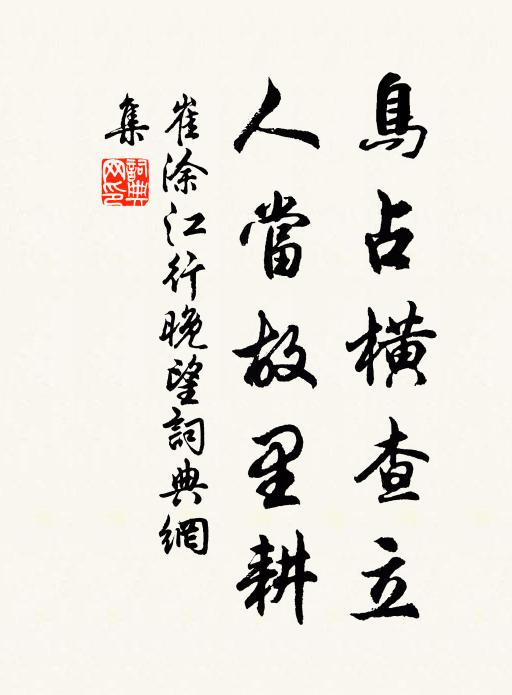 鳥占橫查立
人當故里耕
崔涂江行晚望詞典網
集
詞典
网印